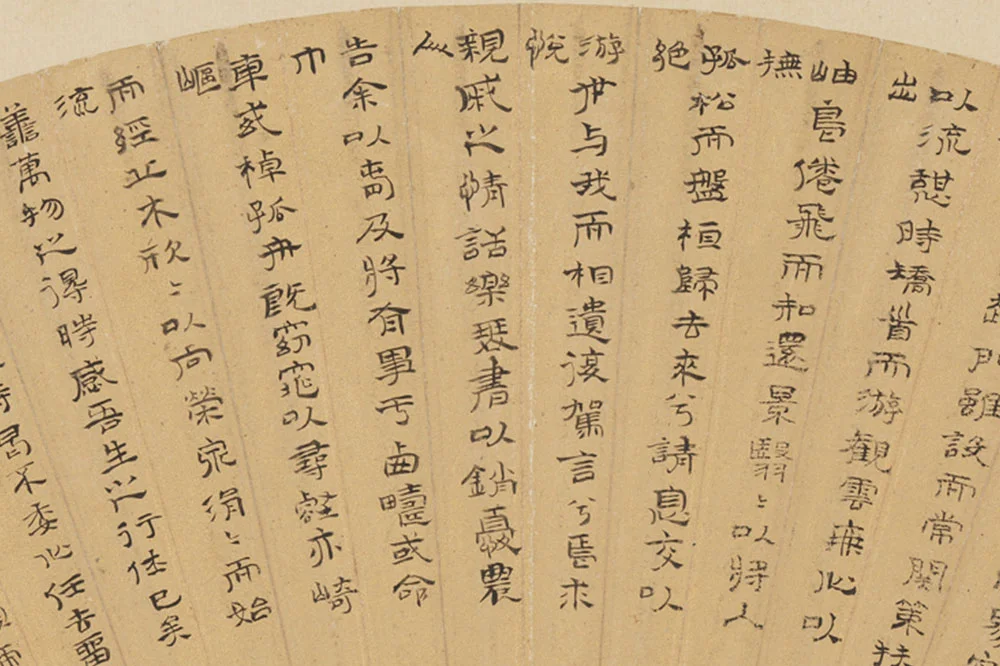 門雖設而常關策扶
以流憩時矯首而游觀雲無心以
出
岫鳥倦飛而知還景翳〻以將入
撫
孤松而盤桓歸去來兮請息交以
絕
游世与我而相遺復駕言兮焉求
悅
親戚之情話樂琴書以銷憂農
人
告余以春及將有事于西疇或命
巾
車或棹孤舟既窈窕以尋壑亦崎
嶇
而經丘木欣〻以向榮泉涓〻而始
流
善萬物之得時感吾生之行休已矣
時曷不委心任去留